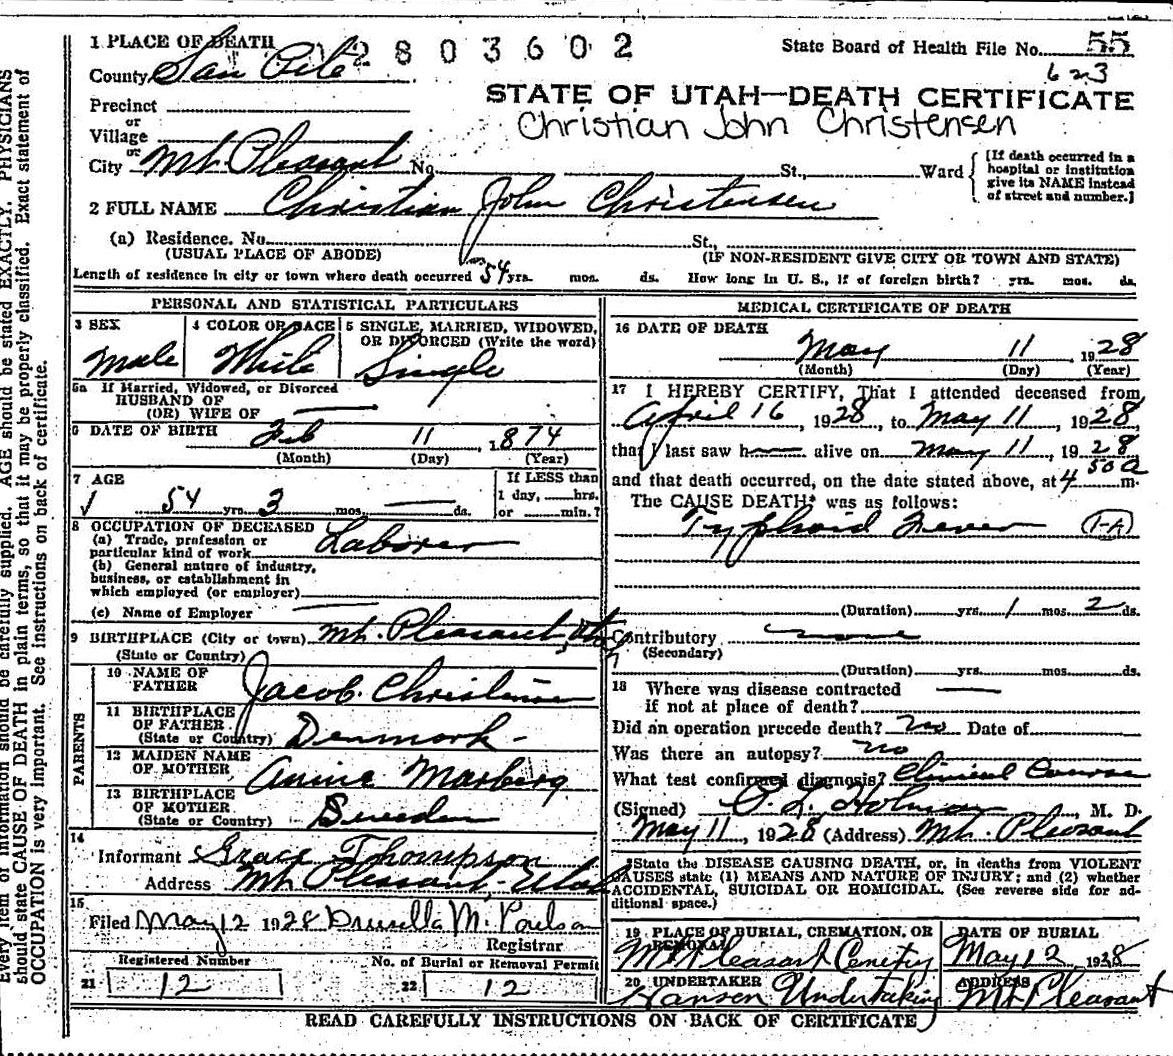 1 PLACE OF DEATH
2 8 0 3 6 0 2
State Board of Health File No. 55
623
County San Pete
STATE OF UTAH—DEATH CERTIFICATE
Christian John Christensen
Precinct
or
Village
or
City Mt. Pleasant No. St., Ward
[If death occurred in a
hospital or institution
give its NAME instead
of street and number.]
2 FULL NAME Christian John Christensen
(a) Residence. No. St.,
(USUAL PLACE OF ABODE) (IF NON-RESIDENT GIVE CITY OR TOWN AND STATE)
Length of residence in city or town where death occurred 54 yrs. mos. ds. How long in U. S., if of foreign birth? yrs. mos. ds.
PERSONAL AND STATISTICAL PARTICULARS
3 SEX
Male
4 COLOR OR RACE
White
5 SINGLE, MARRIED, WIDOWED,
OR DIVORCED (Write the word)
Single
5a If Married, Widowed, or Divorced
HUSBAND OF
(OR) WIFE OF
6 DATE OF BIRTH Feb 11 1874
(Month) (Day) (Year)
7 AGE
54 yrs. 3 mos. ds.
If LESS than
1 day, hrs.
or min.?
8 OCCUPATION OF DECEASED
(a) Trade, profession or
particular kind of work Laborer
(b) General nature of industry,
business, or establishment in
which employed (or employer)
(c) Name of Employer
9 BIRTHPLACE (City or town) Mt. Pleasant, Utah
(State or Country)
PARENTS
10 NAME OF
FATHER Jacob Christensen
11 BIRTHPLACE
OF FATHER
(State or Country) Denmark
12 MAIDEN NAME
OF MOTHER Annie Marberg
13 BIRTHPLACE
OF MOTHER
(State or Country) Sweden
14
Informant Grace Thompson
Address Mt Pleasant Utah
15
Filed May 12 1928 Drusella M. Poulson
Registrar
Registered Number
21 12
No. of Burial or Removal Permit
22 12
MEDICAL CERTIFICATE OF DEATH
16 DATE OF DEATH
May 11 1928
(Month) (Day) (Year)
17 I HEREBY CERTIFY, That I attended deceased from
April 16, 1928, to May 11, 1928,
that I last saw h alive on May 11, 1928
and that death occurred, on the date stated above, at 4 50 a m.
The CAUSE DEATH* was as follows:
Typhoid Fever 1-A
(Duration) yrs. 1 mos. 2 ds.
Contributory none
(Secondary)
(Duration) yrs. mos. ds.
18 Where was disease contracted
if not at place of death?
Did an operation precede death? no Date of
Was there an autopsy? no
What test confirmed diagnosis? Clinical Course
(Signed) O. L. Holman, M. D.
May 11, 1928 (Address) Mt. Pleasant
*State the DISEASE CAUSING DEATH, or, in deaths from VIOLENT
CAUSES state (1) MEANS AND NATURE OF INJURY; and (2) whether
ACCIDENTAL, SUICIDAL OR HOMICIDAL. (See reverse side for ad-
ditional space.)
19 PLACE OF BURIAL, CREMATION, OR
REMOVAL
Mt Pleasant Cemetry
DATE OF BURIAL
May 12 1928
20 UNDERTAKER
Hansen Undertaking
ADDRESS
Mt Pleasant
READ CAREFULLY INSTRUCTIONS ON BACK OF CERTIFICATE
Every item of information should be carefully supplied. AGE should be stated EXACTLY. PHYSICIANS
should state CAUSE OF DEATH in plain terms, so that it may be properly classified. Exact statement of
OCCUPATION is very important. See instructions on back of certificate.